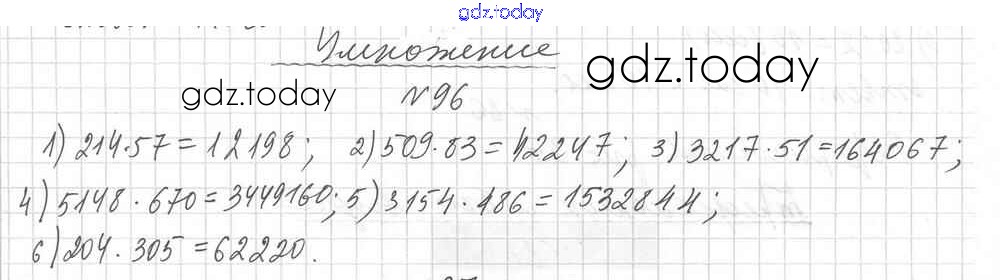 gdz.today
Умножение
gdz.today
gdz.today
№96
1) 214·57 = 12198; 2) 509·83 = 42247; 3) 3217·51 = 164067;
4) 5148·670 = 3449160; 5) 3154·486 = 1532844;
6) 204·305 = 62220.